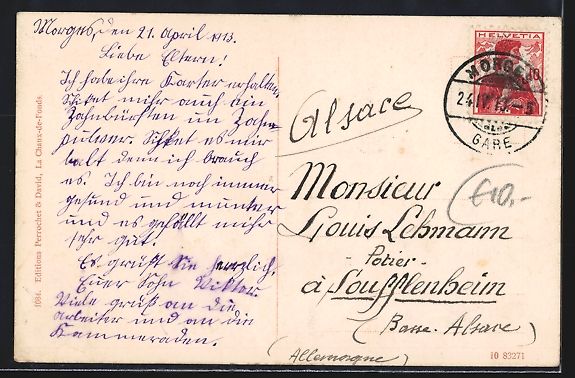 Morges, den 21. April 1913.
Liebe Eltern!
Ich habe ihre Karten erhalten
Schiket mihr auch ein
Zahnbürsten un Zahn-
pulwer. Schiket es mir
balt denn ich brauch
es. Ich bin noch immer
gesund und munter
und es gefällt mihr
sehr gut.
Es grüßt Sie herzlich,
Euer Sohn Viktor
Viele grüß an die
arbeiter und an die
Kammeraden.
1084. Editions Perrochet & David, La Chaux-de-Fonds
HELVETIA
10
MORGES
24 IV
GARE
Alsace
€10,-
Monsieur
Louis Lehmann
- Potier -
à Soufflenheim
(Basse-Alsace)
(Allemagne)
10 83271